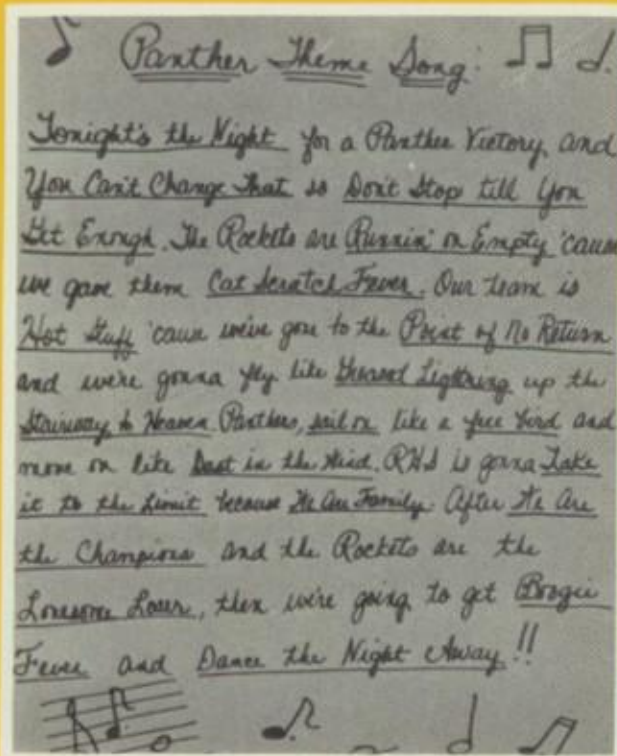 Panther Theme Song:
Tonight's the Night for a Panther Victory, and
You Can't Change That so Don't Stop till You
Get Enough. The Rockets are Runnin' on Empty 'cause
we gave them Cat Scratch Fever. Our team is
Hot Stuff 'cause we've gone to the Point of No Return
and we're gonna fly like Greased Lightning up the
Stairway to Heaven. Panthers, sail on like a free bird and
move on like Dust in the Wind. RHS is gonna Take
it to the Limit because We Are Family. After We Are
the Champions and the Rockets are the
Lonesome Loser, then we're going to get Boogie
Fever and Dance the Night Away!!